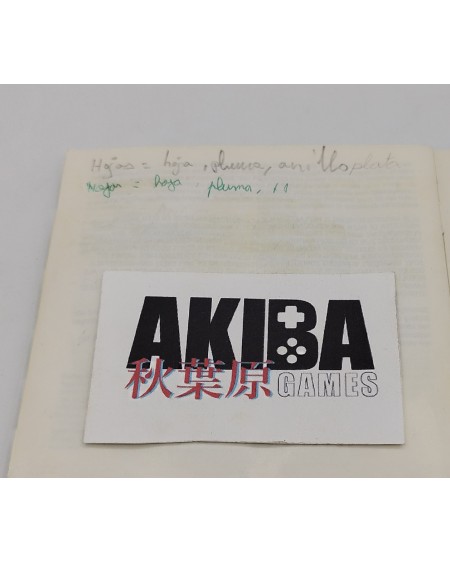 Hojas = hoja, pluma, anillo plata
Negra = hoja pluma, ,,
AKIBA
秋葉原 GAMES